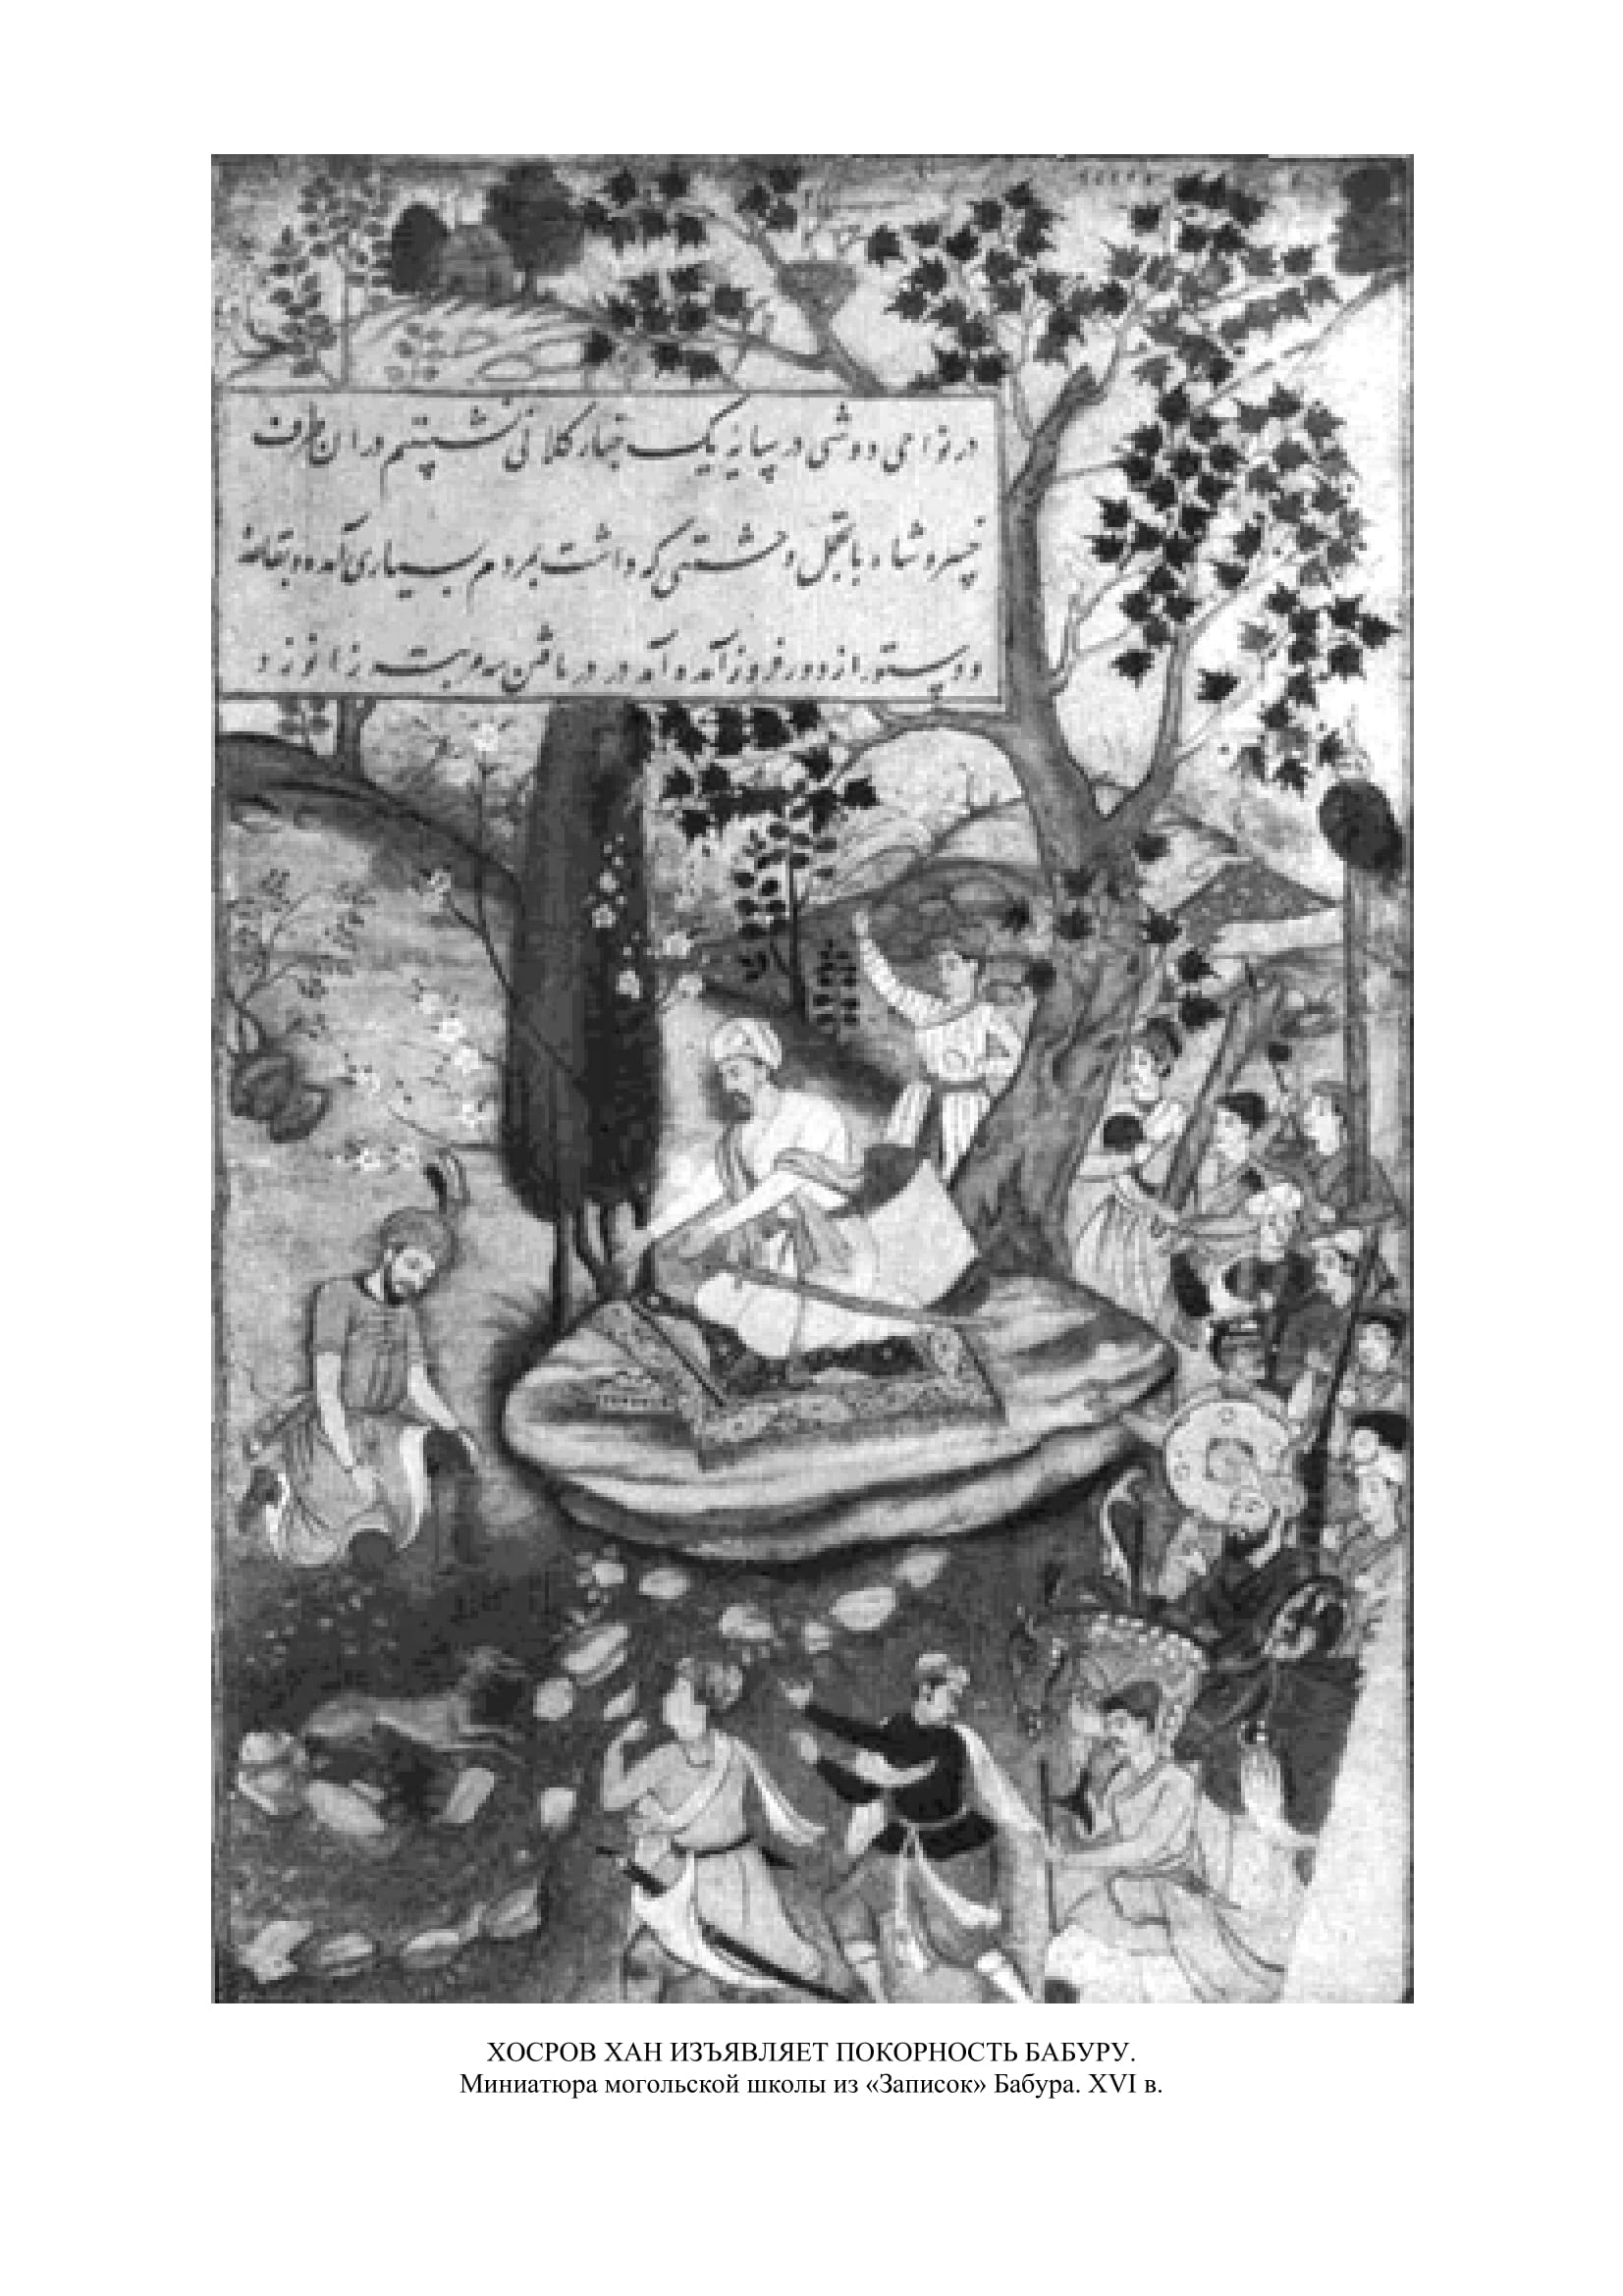 در نواحی دوشی در پیایهٔ یک چنار کلانی نشستم در ان طرف
خسرو شاه با تجمل و حشمتی که داشت بمردم بسیاری آمده و بقاعدهٔ
و دستور از دور فروز آمده آمد در در یافتن سه مرتبت زانو زد
ХОСРОВ ХАН ИЗЪЯВЛЯЕТ ПОКОРНОСТЬ БАБУРУ.
Миниатюра могольской школы из «Записок» Бабура. XVI в.